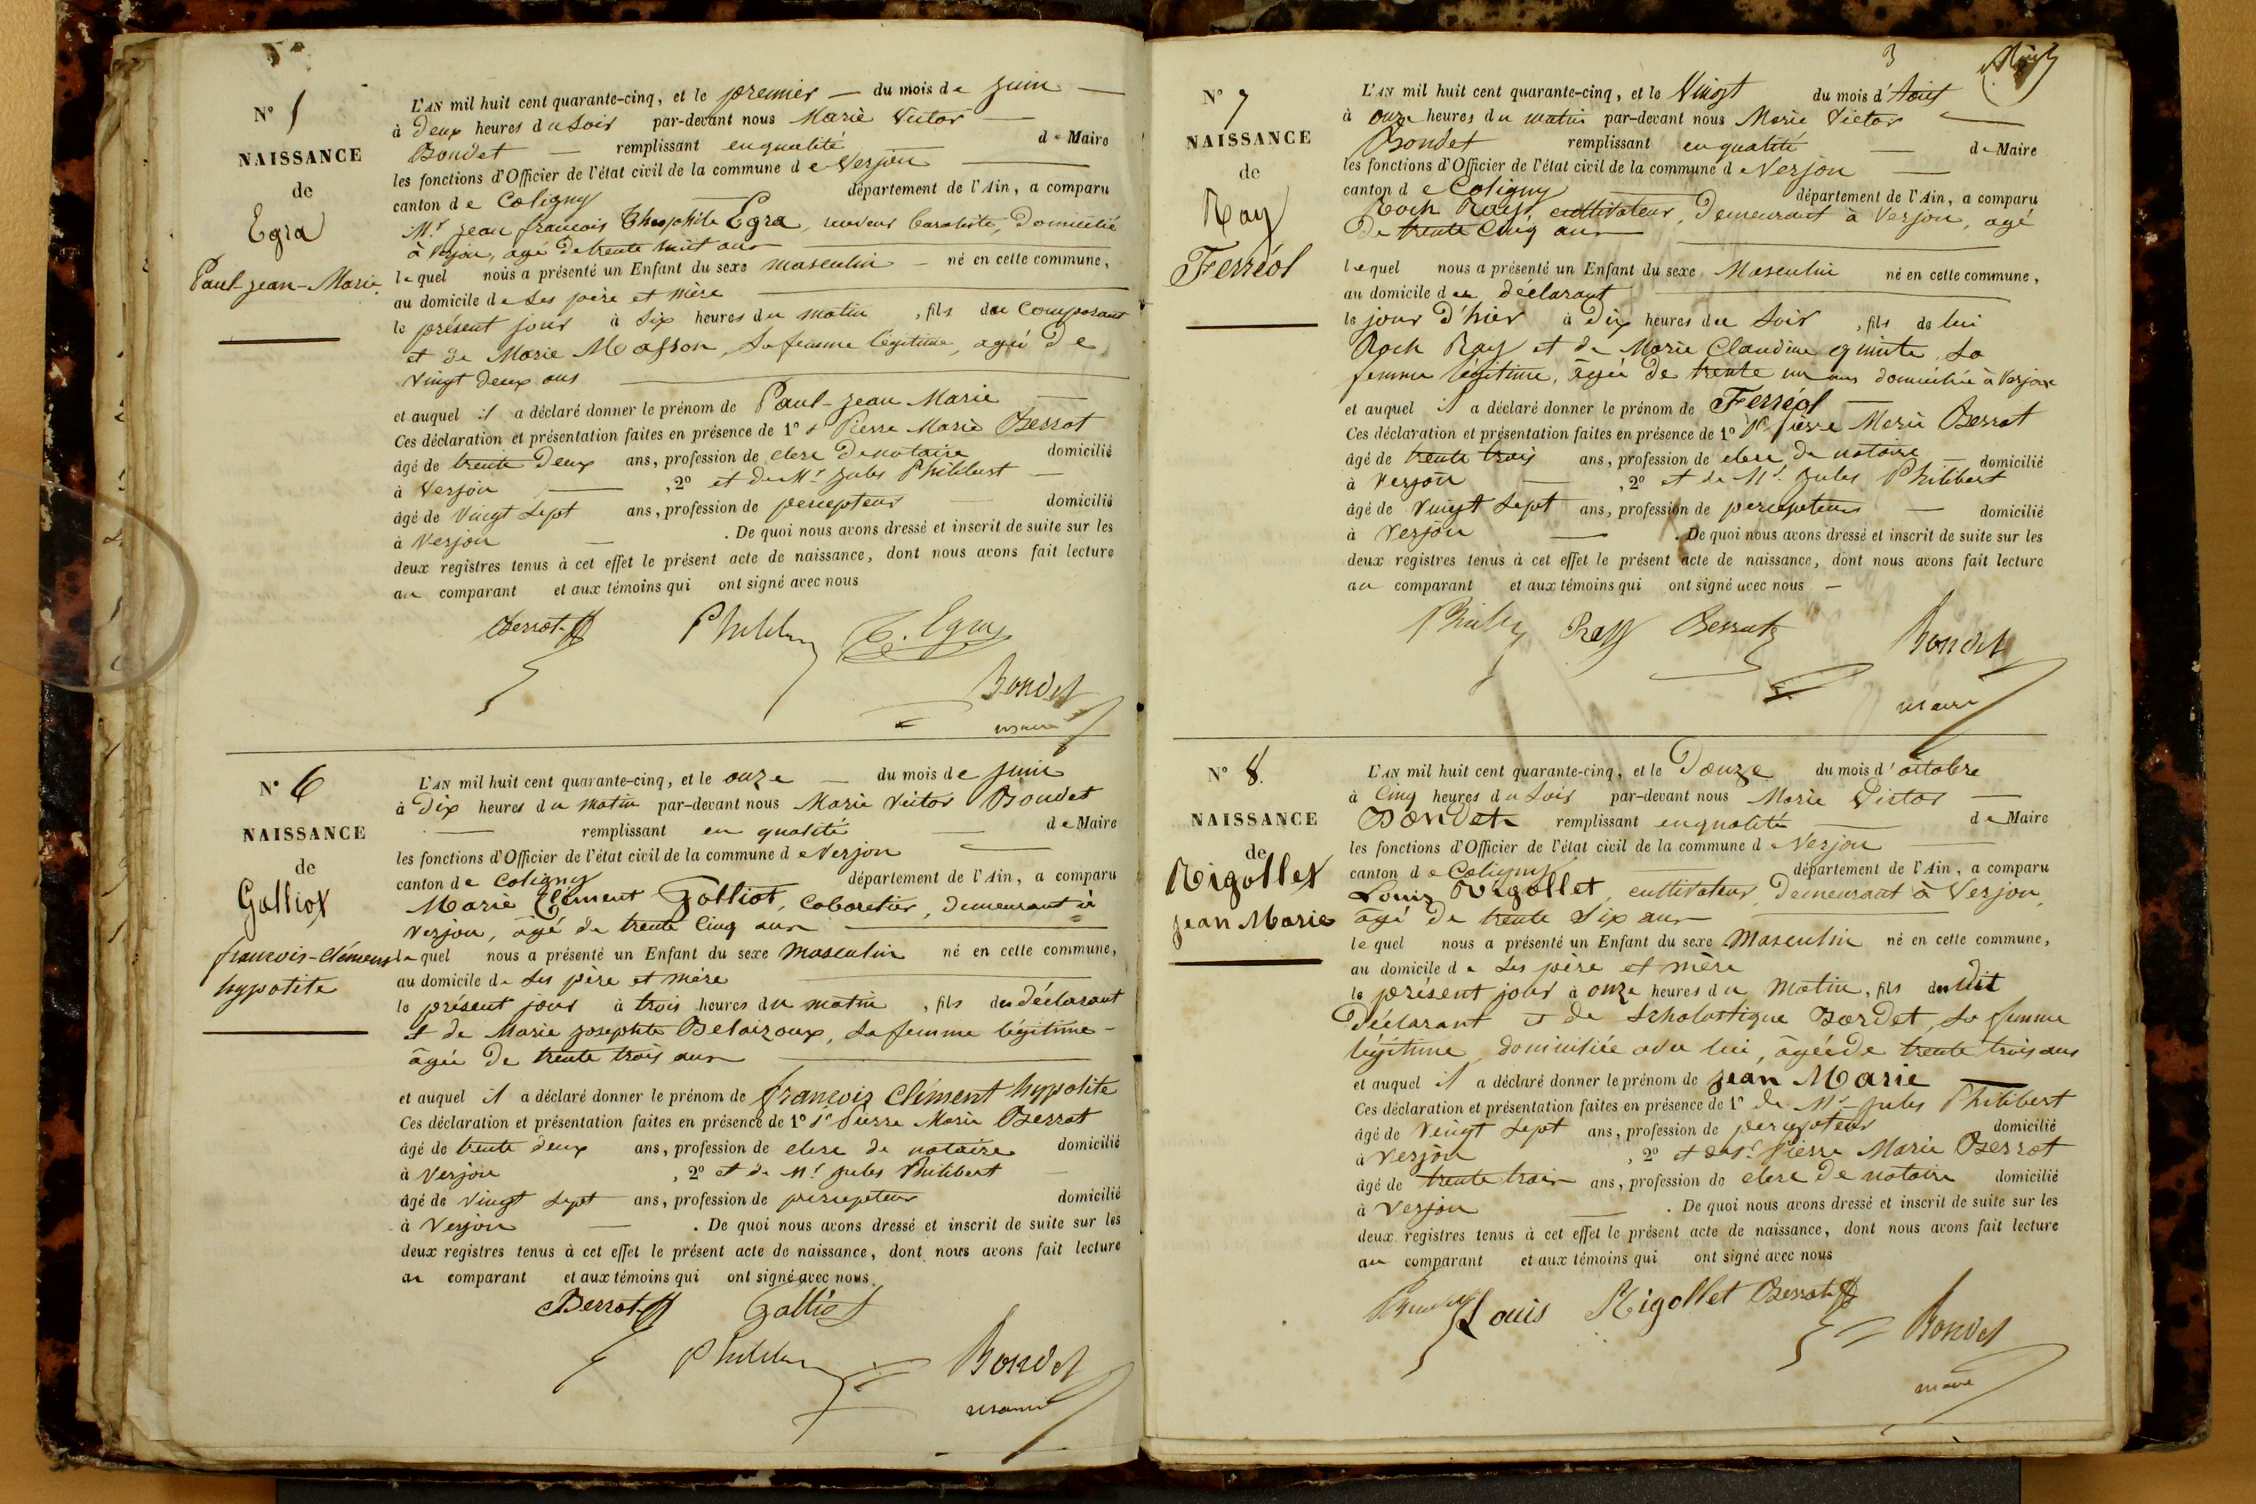 N° 5
NAISSANCE
de
Egra
Paul-Jean-Marie
L'AN mil huit cent quarante-cinq, et le premier — du mois de juin —
à Deux heures du Soir par-devant nous Marie Victor —
Bondet — remplissant en qualité de Maire
les fonctions d'Officier de l'état civil de la commune de Verjon —
canton de Coligny — département de l'Ain, a comparu
Mr jean francois Théophile Egra, receveur buraliste, Domicilié
à Verjon, agé de trente huit ans —
lequel nous a présenté un Enfant du sexe masculin — né en cette commune,
au domicile de ses père et mère —
le présent jour à six heures du matin, fils du Comparant
et de Marie Masson, sa femme légitime, agée De
vingt deux ans —
et auquel il a déclaré donner le prénom de Paul-jean Marie —
Ces déclaration et présentation faites en présence de 1° Pierre Marie Berrot
âgé de trente Deux ans, profession de clerc De notaire domicilié
à Verjon —, 2° et de Mr jules Philibert —
âgé de vingt sept ans, profession de percepteur — domicilié
à Verjon —. De quoi nous avons dressé et inscrit de suite sur les
deux registres tenus à cet effet le présent acte de naissance, dont nous avons fait lecture
au comparant et aux témoins qui ont signé avec nous
Berrot Philibert T. Egra
Bondet
maire
N° 6
NAISSANCE
de
Galliot
francois-Clément
hyppolite
L'AN mil huit cent quarante-cinq, et le onze — du mois de juin
à Dix heures du matin par-devant nous Marie Victor Bondet
— remplissant en qualité — de Maire
les fonctions d'Officier de l'état civil de la commune de Verjon —
canton de Coligny département de l'Ain, a comparu
Marie Clément Galliot, Cabaretier, Demeurant à
Verjon, âgé de trente Cinq ans —
lequel nous a présenté un Enfant du sexe Masculin né en cette commune,
au domicile de ses père et mère —
le présent jour à trois heures du matin, fils du déclarant
et de Marie josephte Belaizoux, sa femme légitime -
âgée De trente trois ans —
et auquel il a déclaré donner le prénom de françois Clément hyppolite
Ces déclaration et présentation faites en présence de 1° Sr Pierre Marie Berrot
âgé de trente deux ans, profession de clerc de notaire domicilié
à Verjon, 2° et de Mr jules Philibert —
âgé de vingt sept ans, profession de percepteur domicilié
à Verjon —. De quoi nous avons dressé et inscrit de suite sur les
deux registres tenus à cet effet le présent acte de naissance, dont nous avons fait lecture
au comparant et aux témoins qui ont signé avec nous.
Berrot Galliot
Philibert Bondet
maire
3
N° 7
NAISSANCE
de
Ray
Ferréol
L'AN mil huit cent quarante-cinq, et le Vingt du mois d'Aout
à onze heures du matin par-devant nous Marie Victor —
Bondet remplissant en qualité — de Maire
les fonctions d'Officier de l'état civil de la commune de Verjon —
canton de Coligny — département de l'Ain, a comparu
Roch Ray, cultivateur, Demeurant à Verjon, agé
De trente Cinq ans —
lequel nous a présenté un Enfant du sexe Masculin né en cette commune,
au domicile du déclarant —
le jour D'hier à Dix heures du Soir, fils de lui
Roch Ray et de Marie Claudine quinte, sa
femme légitime, âgée De trente un ans domiciliée à Verjon
et auquel il a déclaré donner le prénom de Ferréol —
Ces déclaration et présentation faites en présence de 1° Sr Pierre Marie Berrot
âgé de trente trois ans, profession de clerc De notaire — domicilié
à Verjon —, 2° et de Mr. jules Philibert
âgé de vingt sept ans, profession de percepteur — domicilié
à Verjon —. De quoi nous avons dressé et inscrit de suite sur les
deux registres tenus à cet effet le présent acte de naissance, dont nous avons fait lecture
au comparant et aux témoins qui ont signé avec nous —
Ray Berrot Bondet
maire
N° 8.
NAISSANCE
de
Rigollet
jean Marie
L'AN mil huit cent quarante-cinq, et le Douze du mois d'octobre
à Cinq heures du Soir par-devant nous Marie Victor —
Bondet remplissant en qualité — de Maire
les fonctions d'Officier de l'état civil de la commune de Verjon —
canton de Coligny département de l'Ain, a comparu
Louis Rigollet, cultivateur, Demeurant à Verjon,
âgé De trente Six ans —
lequel nous a présenté un Enfant du sexe Masculin né en cette commune,
au domicile de ses père et mère
le présent jour à onze heures du Matin, fils dudit
Déclarant et de Scholastique Bordet, sa femme
légitime, domiciliée avec lui, âgée de trente trois ans
et auquel il a déclaré donner le prénom de jean Marie —
Ces déclaration et présentation faites en présence de 1° de Mr jules Philibert
âgé de Vingt sept ans, profession de percepteur domicilié
à Verjon, 2° et de Sr. Pierre Marie Berrot
âgé de trente trois ans, profession de clerc De notaire domicilié
à Verjon —. De quoi nous avons dressé et inscrit de suite sur les
deux registres tenus à cet effet le présent acte de naissance, dont nous avons fait lecture
au comparant et aux témoins qui ont signé avec nous
Louis Rigollet Berrot Bondet
maire